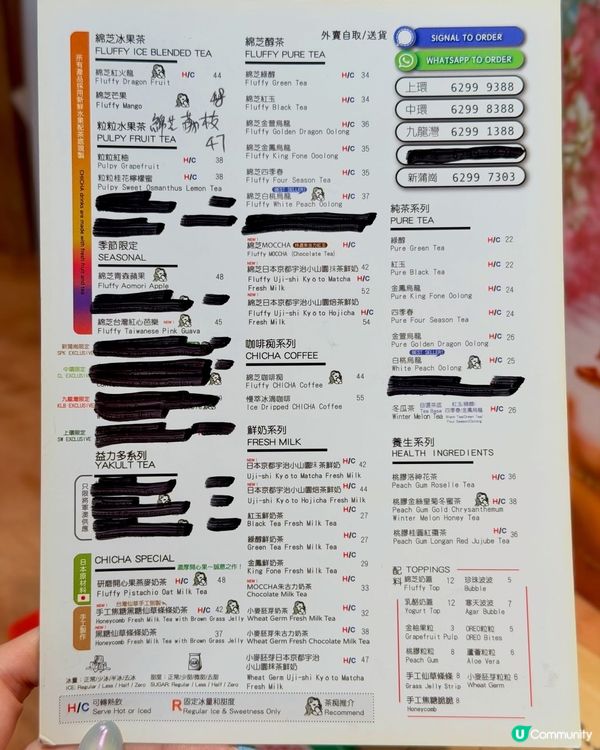 外賣自取/送貨
SIGNAL TO ORDER
WHATSAPP TO ORDER
上環 6299 9388
中環 6299 8388
九龍灣 6299 1388
新蒲崗 6299 7303
所有產品採用新鮮水果配茶底調製
CHICHA drinks are made with fresh fruit and tea
綿芝冰果茶
FLUFFY ICE BLENDED TEA
綿芝紅火龍 H/C 44
Fluffy Dragon Fruit
綿芝芒果 48
Fluffy Mango
粒粒水果茶 綿芝荔枝
PULPY FRUIT TEA 47
粒粒紅柚 H/C 38
Pulpy Grapefruit
粒粒桂花檸檬蜜 H/C 38
Pulpy Sweet Osmanthus Lemon Tea
季節限定
SEASONAL
綿芝青森蘋果 48
Fluffy Aomori Apple
綿芝台灣紅心芭樂 NEW! 45
Fluffy Taiwanese Pink Guava
新蒲崗限定
SPK EXCLUSIVE
中環限定
CL EXCLUSIVE
九龍灣限定
KLB EXCLUSIVE
上環限定
SW EXCLUSIVE
益力多系列
YAKULT TEA
只限將軍澳供應
CHICHA SPECIAL
濃厚開心果~誠意之作!
日本原材料
研磨開心果燕麥奶茶 H/C 48
Fluffy Pistachio Oat Milk Tea
手工製作
NEW! 台灣仙草手工別製
手工焦糖黑糖仙草條條奶茶 H/C 42
Honeycomb Fresh Milk Tea with Brown Grass Jelly
NEW!
黑糖仙草條條奶茶 37
Fresh Milk Tea with Brown Grass Jelly
綿芝醇茶
FLUFFY PURE TEA
綿芝綠醇 H/C 34
Fluffy Green Tea
綿芝紅玉 H/C 34
Fluffy Black Tea
綿芝金萱烏龍 H/C 36
Fluffy Golden Dragon Oolong
綿芝金鳳烏龍 H/C 35
Fluffy King Fone Ooolong
綿芝四季春 H/C 35
Fluffy Four Season Tea
BEST-SELLER!
綿芝白桃烏龍 H/C 37
Fluffy White Peach Oolong
NEW!
綿芝MOCCHA H/C
Fluffy MOCCHA (Chocolate Tea)
NEW!
綿芝日本京都宇治小山園抹茶鮮奶 42
Fluffy Uji-shi Kyoto Matcha H/C
Fresh Milk 52
NEW!
綿芝日本京都宇治小山園焙茶鮮奶
Fluffy Uji-shi Kyoto Hojicha H/C
Fresh Milk 54
咖啡痴系列
CHICHA COFFEE
綿芝咖啡痴 H/C 44
Fluffy CHICHA Coffee
慢萃冰滴咖啡 55
Ice Dripped CHICHA Coffee
鮮奶系列
FRESH MILK
NEW!
日本京都宇治小山園抹茶鮮奶 H/C 42
Uji-shi Kyoto Matcha Fresh Milk
NEW!
日本京都宇治小山園焙茶鮮奶 H/C 44
Uji-shi Kyoto Hojicha Fresh Milk
紅玉鮮奶茶 H/C 27
Black Tea Fresh Milk Tea
綠醇鮮奶茶 H/C 27
Green Tea Fresh Milk Tea
金鳳鮮奶茶 H/C 29
King Fone Fresh Milk Tea
MOCCHA朱古力奶茶 H/C 33
Chocolate Milk Tea
小麥胚芽奶茶 H/C 32
Wheat Germ Fresh Milk Tea
小麥胚芽朱古力奶茶 H/C 38
Wheat Germ Fresh Chocolate Milk Tea
小麥胚芽日本京都宇治
小山園抹茶鮮奶 H/C 47
Wheat Germ Uji-shi Kyoto Matcha
Fresh Milk
純茶系列
PURE TEA
綠醇 H/C 22
Pure Green Tea
紅玉 H/C 22
Pure Black Tea
金鳳烏龍 H/C 24
Pure King Fone Oolong
四季春 H/C 24
Pure Four Season Tea
金萱烏龍 H/C 26
Pure Golden Dragon Oolong
BEST-SELLER!
白桃烏龍 H/C 25
White Peach Oolong
冬瓜茶 H/C 26
Winter Melon Tea
養生系列
HEALTH INGREDIENTS
桃膠洛神花茶 H/C 36
Peach Gum Roselle Tea
桃膠金絲皇菊冬蜜茶 H/C 38
Peach Gum Gold Chrysanthemum
Winter Melon Honey Tea
桃膠桂圓紅棗茶 H/C 36
Peach Gum Longan Red Jujube Tea
配料 TOPPINGS
綿芝奶蓋 12 珍珠波波 5
Fluffy Top Bubble
乳酪奶蓋 12 寒天波波 7
Yogurt Top Agar Bubble
金柚果粒 3 OREO粒粒 5
Grapefruit Pulp OREO Bites
桃膠粒粒 8 蘆薈粒粒 6
Peach Gum Aloe Vera
手工仙草條條 8 小麥胚芽粒粒 6
Grass Jelly Strip Wheat Germ
手工焦糖脆脆 8
Honeycomb
冰量:正常/少冰/半冰/去冰
ICE: Regular / Less / Half / Zero
甜度:正常/少甜/微甜/去甜
SUGAR: Regular / Less / Half / Zero
H/C 可轉熱飲
Serve Hot or Iced
R 固定冰量和甜度
Regular Ice & Sweetness Only
茶痴推介
Recommend
U Community